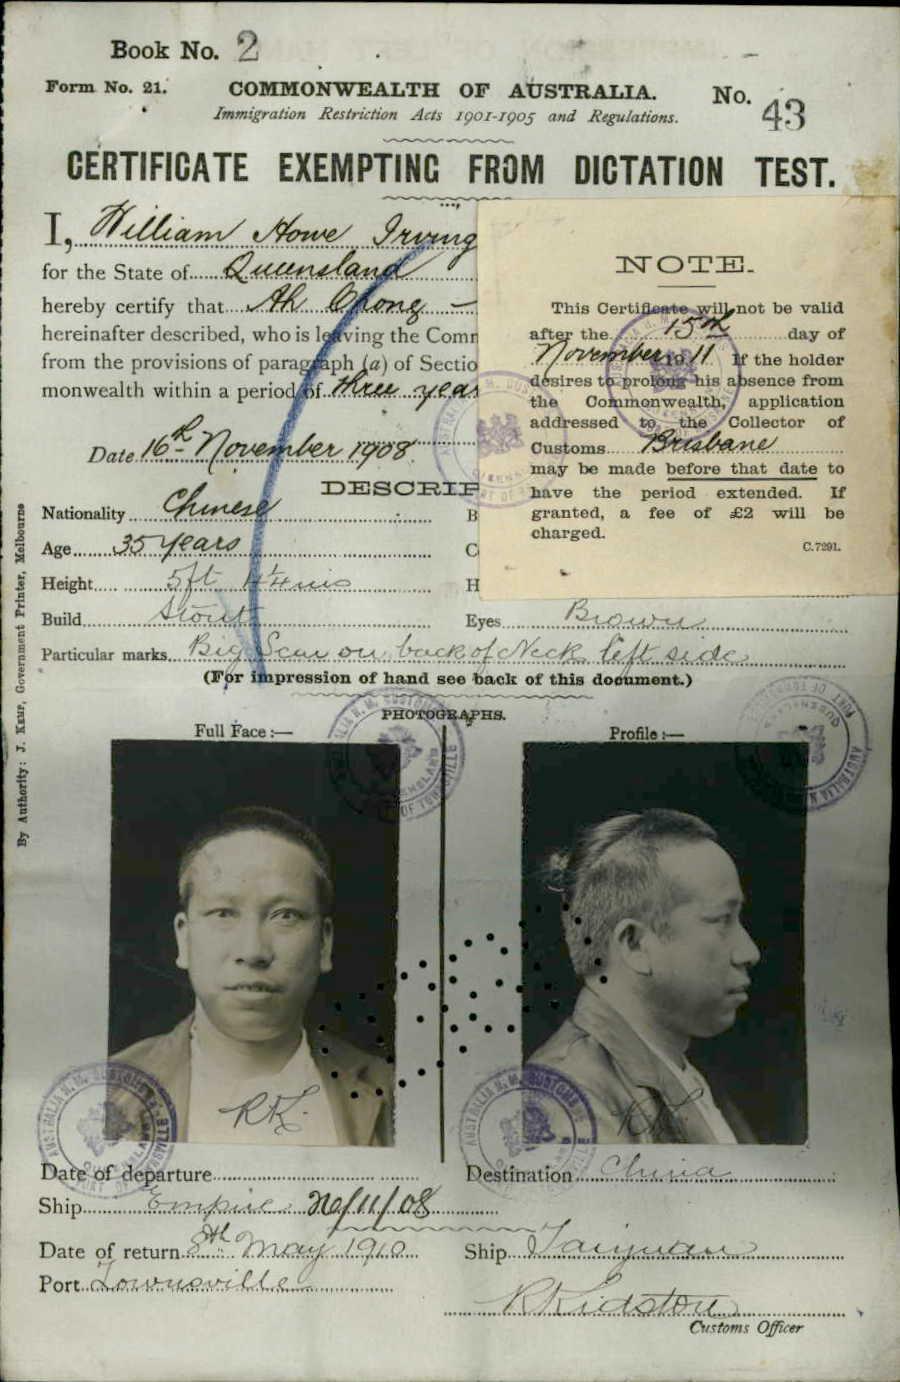 Book No. 2
Form No. 21.
COMMONWEALTH OF AUSTRALIA.
No. 43
Immigration Restriction Acts 1901-1905 and Regulations.
CERTIFICATE EXEMPTING FROM DICTATION TEST.
I, William Howe Irving
for the State of Queensland
hereby certify that Ah Chong —
hereinafter described, who is leaving the Comm
from the provisions of paragraph (a) of Sectio
monwealth within a period of three year
Date 16th November 1908
NOTE.
This Certificate will not be valid
after the 15th day of
November 1911 If the holder
desires to prolong his absence from
the Commonwealth, application
addressed to the Collector of
Customs Brisbane
may be made before that date to
have the period extended. If
granted, a fee of £2 will be
charged.
C.7291.
DESCRIP
Nationality Chinese
B
Age 35 years
C
Height 5ft 4¼ins
H
Build Stout
Eyes Brown
Particular marks Big Scar on back of Neck left side
(For impression of hand see back of this document.)
PHOTOGRAPHS.
Full Face :—
Profile :—
By Authority: J. Kemp, Government Printer, Melbourne
RK.
RK.
Date of departure
Destination China
Ship Empire 26/11/08
Date of return 8th May 1910
Ship Taiyuan
Port Townsville
R Kidston
Customs Officer